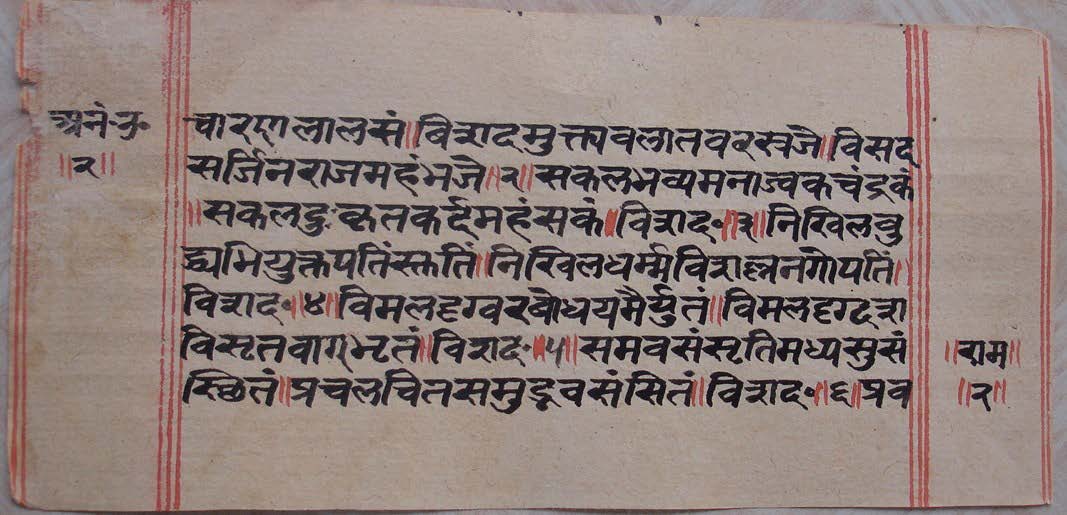 अनं॰नु॰
॥२॥
चारणलालसं॥विशदमुक्त्यवलातवरस्रजै॥विसद
सर्जिनराजमहंभजै॥२॥सकलभव्यमनाज्वकचंद्रकं
॥सकलदुःकृतकर्द्दमहंसकं॥विशद॰॥३॥निखिलबु
द्ध्यभियुक्तपतिंस्तुतिं॥निखिलधर्म्मविशालनगोपतिं॥
विशद॰॥४॥विमलदृग्वरबोधयमैर्युतं॥विमलदृग्दशा
विसृतवाग्भृतं॥विशद॰॥५॥समवसंसृतिमध्यसुसं
स्छितं॥प्रचलचितसमुद्भवसंसितं॥विशद॰॥६॥प्रव
॥राम॥
॥२॥